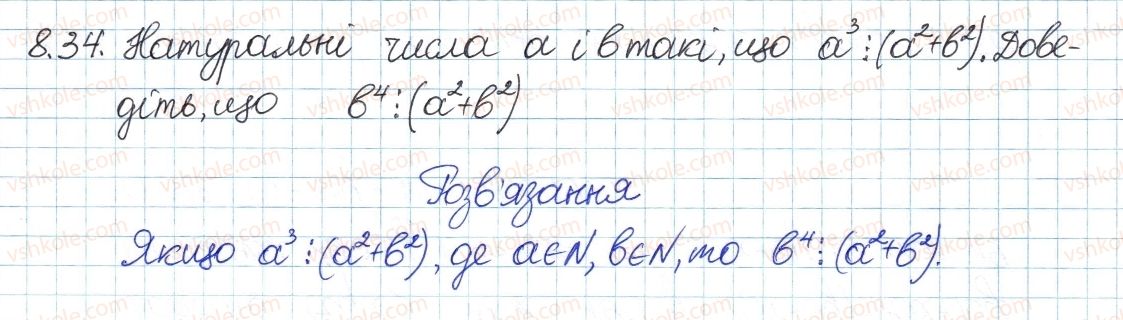 8.34. Натуральні числа a і b такі, що a³⋮(a²+b²). Дове-
діть, що b⁴⋮(a²+b²)
Розв'язання
Якщо a³⋮(a²+b²), де a∈N, b∈N, то b⁴⋮(a²+b²).